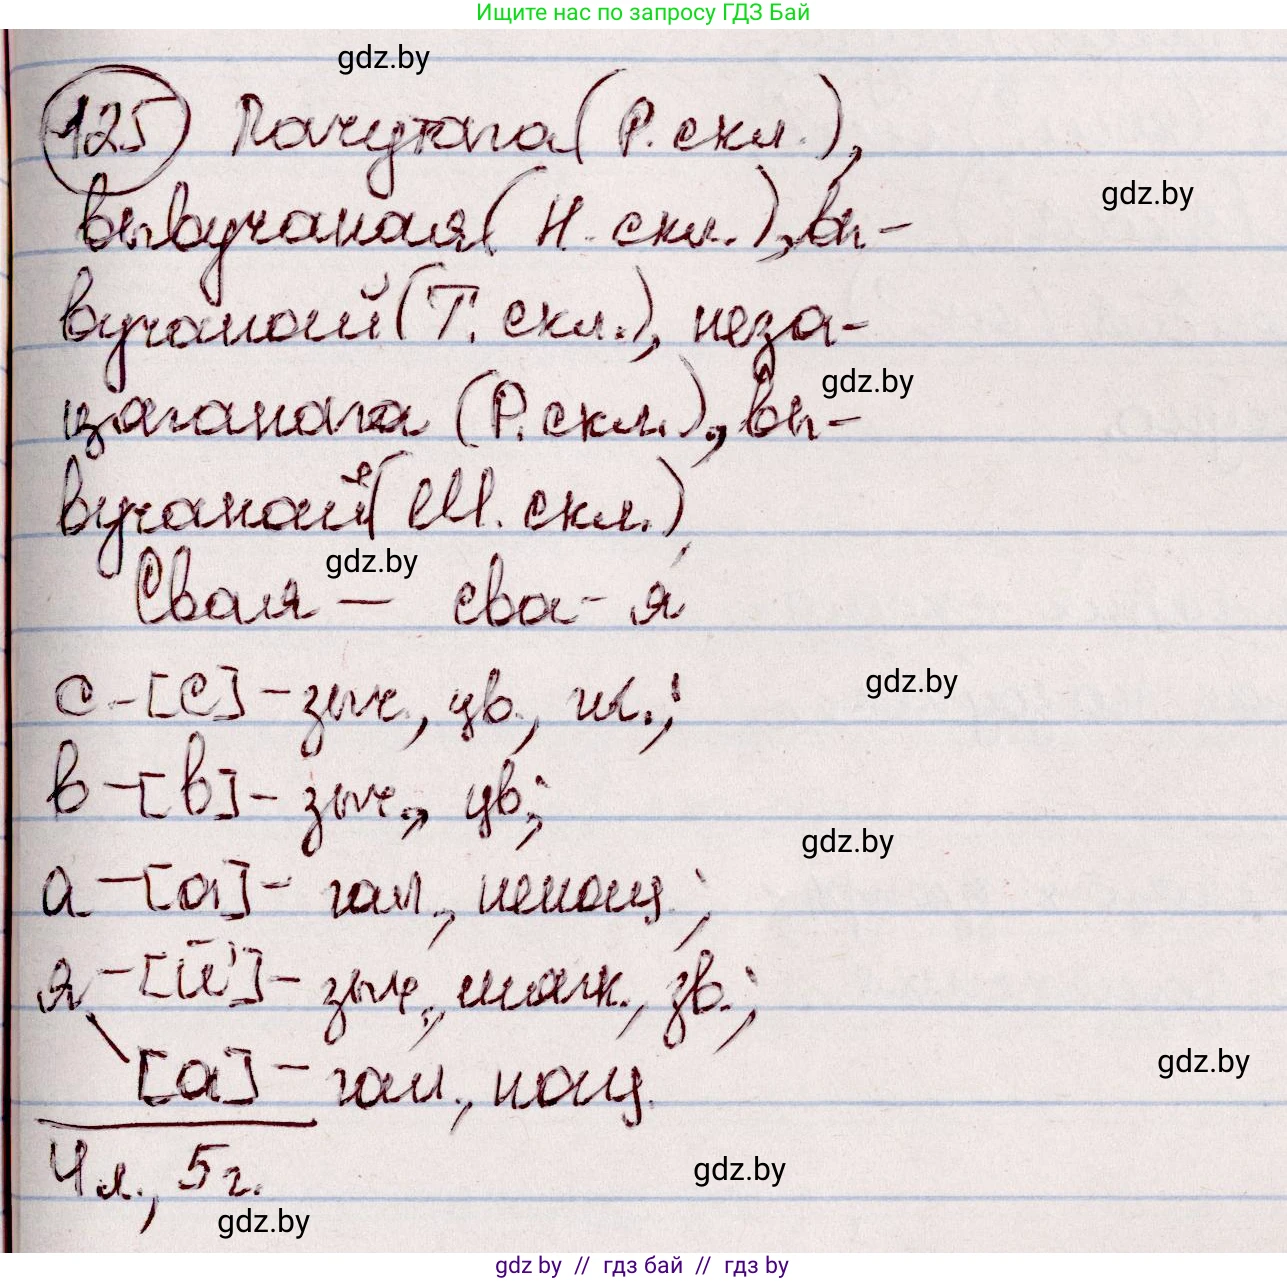 Ищите нас по запросу ГДЗ Бай
gdz.by
125 Пачутага (Р. скл.),
gdz.by
вывучаная (Н. скл.), вы-
вучанай (Т. скл.), неза-
gdz.by
цяганага (Р. скл.), вы-
вучанай (М. скл.)
gdz.by
Свая — сва-я
gdz.by
с - [с] - зыч., цв.,
в - [в] - зыч., цв.;
gdz.by
а - [а] - гал., ненац.;
я - [й'] - зыч., мягк., зв.;
gdz.by
[а] - гал., нац.
4 л., 5 г.
gdz.by
gdz.by
gdz by // гдз бай // gdz by